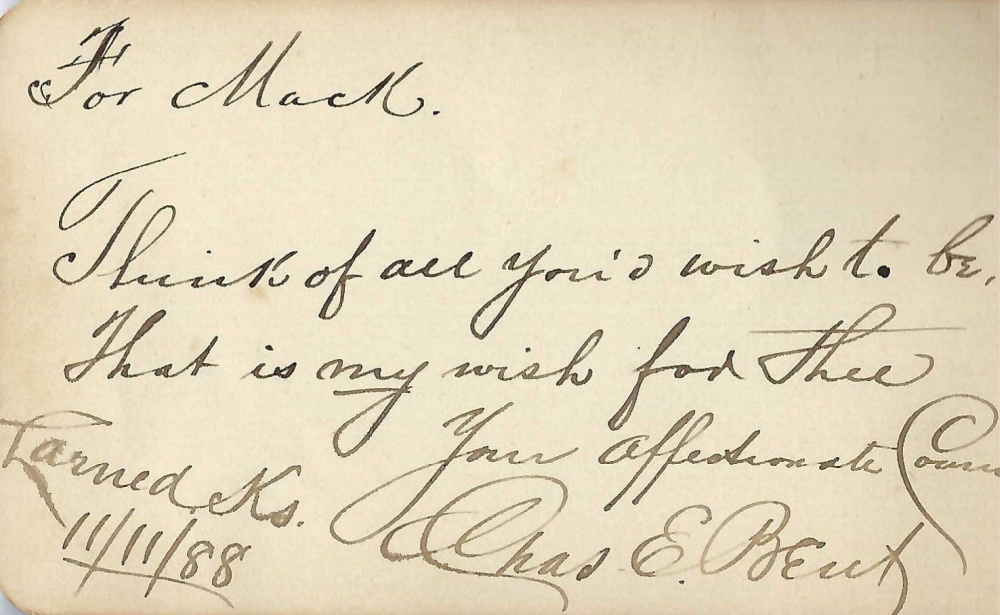 For Mack.
Think of all you'd wish to be,
That is my wish for Thee
Your affectionate Cousin
Chas E. Bent
Larned Ks.
11/11/88